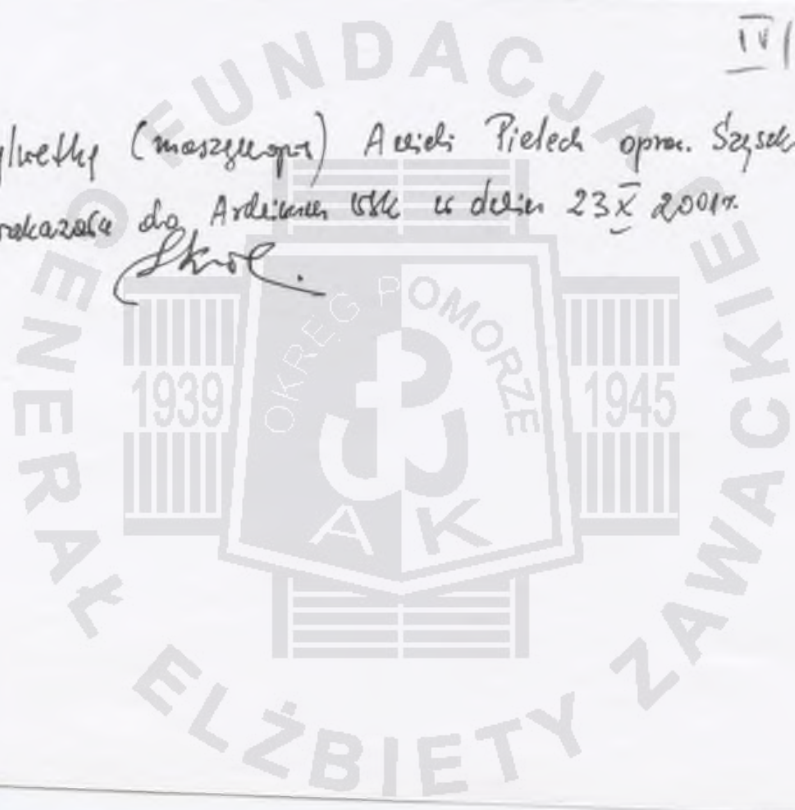 IV/
ylwetkę (maszynopis) Anieli Pielech oprac. Szysk
rzekazała do Archiwum WSK w dniu 23 X 2001r.
FUNDACJA
GENERAŁ ELŻBIETY ZAWACKIEJ
OKRĘG POMORZE
1939
1945
AK